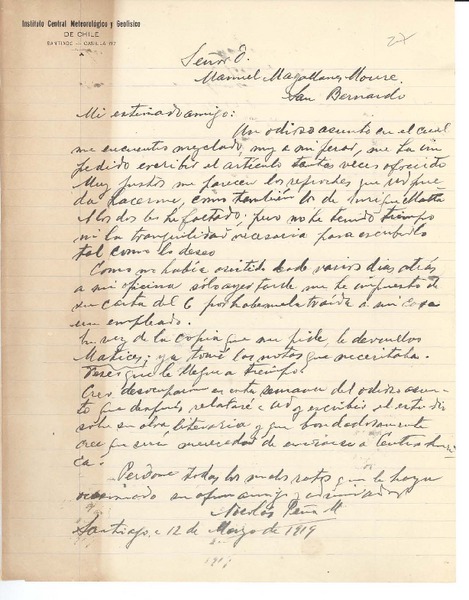 Instituto Central Meteorológico y Geofísico
DE CHILE
SANTIAGO — CASILLA 717
27
Señor D.
Manuel Magallanes Moure.
San Bernardo
Mi estimado amigo:
Un odioso asunto en el cual
me encuentro mezclado, muy a mi pesar, me ha im
pedido escribir el artículo tantas veces ofrecido
Muy justos me parecen los reproches que Ud pue
da hacerme, como también los de Enrique Matta
A los dos les he faltado; pero no he tenido tiempo
ni la tranquilidad necesaria para escribirlo
tal como lo deseo
Como no había asistido desde varios dias atrás
a mi oficina solo ayer tarde me he impuesto de
su carta del 6 por habermela traída a mi casa
un empleado.
En vez de la copia que me pide, le devuelvo
Matices; ya tomé las notas que necesitaba.
Deseo que le llegue a tiempo.
Creo desocuparme en esta semana del odioso asun
to que después relataré a Ud y escribir el estudio
sobre su obra literaria y que bondadosamente
cree que será merecedor de enviarse a Centro Amér
ica.
Perdone todos los malos ratos que le haya
ocasionado su afmo amigo y admirador
Nicolás Peña M.
Santiago, a 12 de Marzo de 1919